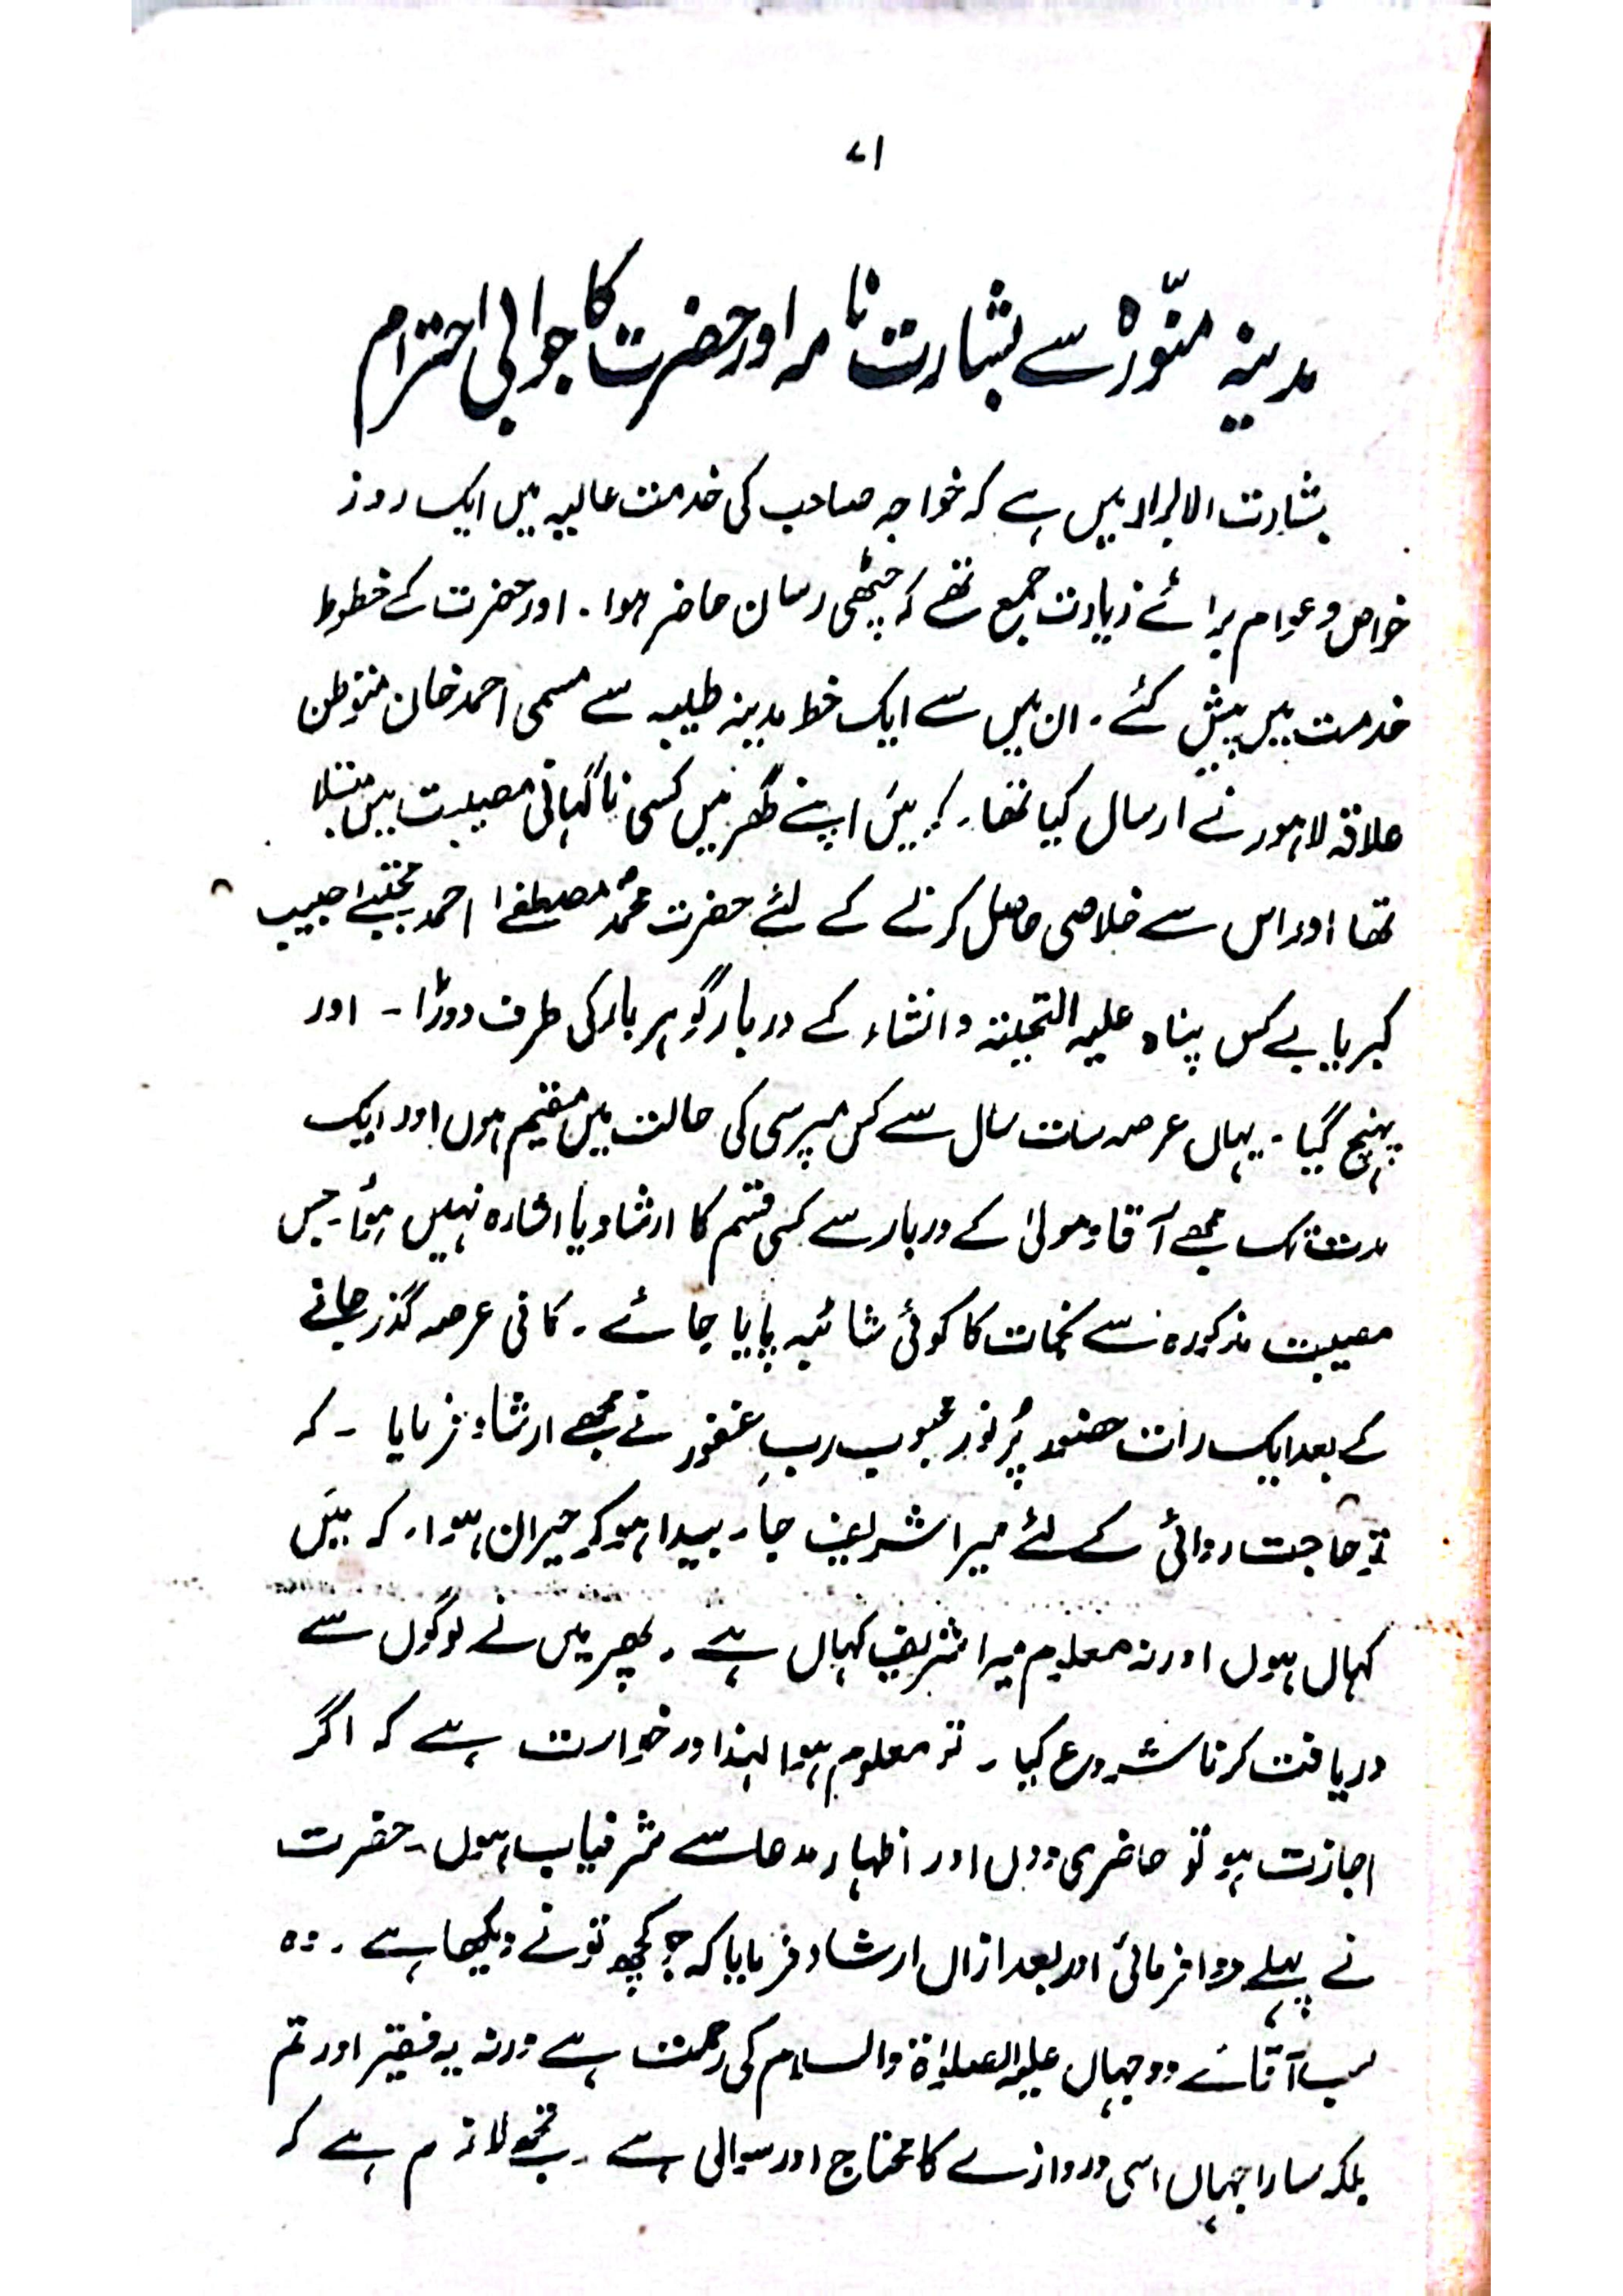 ۷۱
مدینہ منوّرہ سے بشارت نامہ اور حضرت کا جوابی احترام
بشارت الابرار میں ہے کہ خواجہ صاحب کی خدمت عالیہ میں ایک روز
خواص و عوام برائے زیارت جمع تھے کہ چٹھی رسان حاضر ہوا۔ اور حضرت کے خطوط
خدمت میں پیش کئے۔ ان میں سے ایک خط مدینہ طیبہ سے مسمی احمد خان متوطن
علاقہ لاہور نے ارسال کیا تھا۔ کہ میں اپنے گھر میں کسی ناگہانی مصیبت میں مبتلا
تھا اور اس سے خلاصی حاصل کرنے کے لئے حضرت محمدؐ مصطفےٰ احمد مجتبےٰ حبیب
کبریا بے کس پناہ علیہ التحیتہ و انشاء کے دربار گوہر بار کی طرف دوڑا۔ اور
پہنچ گیا۔ یہاں عرصہ سات سال سے کس مپرسی کی حالت میں مقیم ہوں اور ایک
مدت تک مجھے آقا و مولیٰ کے دربار سے کسی قسم کا ارشاد یا اشارہ نہیں ہوُا۔ جس
مصیبت مذکورہ سے نجات کا کوئی شائبہ پایا جائے۔ کافی عرصہ گذر جانے
کے بعد ایک رات حضور پُر نور محبوب ربِ غفور نے مجھے ارشاد فرمایا ۔ کہ
تو حاجت روائی کے لئے میرا شریف جا۔ بیدار ہو کر حیران ہوا۔ کہ میں
کہاں ہوں اور نہ معلوم میرا شریف کہاں ہے ۔ پھر میں نے لوگوں سے
دریافت کرنا شروع کیا ۔ تو معلوم ہوا لہذا درخواست ہے کہ اگر
اجازت ہو تو حاضری دوں اور اظہار مدعا سے شرفیاب ہوں۔ حضرت
نے پہلے دعا فرمائی اور بعد ازاں ارشاد فرمایا کہ جو کچھ تو نے دیکھا ہے ۔ وہ
سب آقائے دو جہاں علیہ الصلوٰۃ والسلام کی رحمت ہے ورنہ یہ فقیر اور تم
بلکہ سارا جہاں اسی دروازے کا محتاج اور سوالی ہے ۔ تجھ لازم ہے کہ